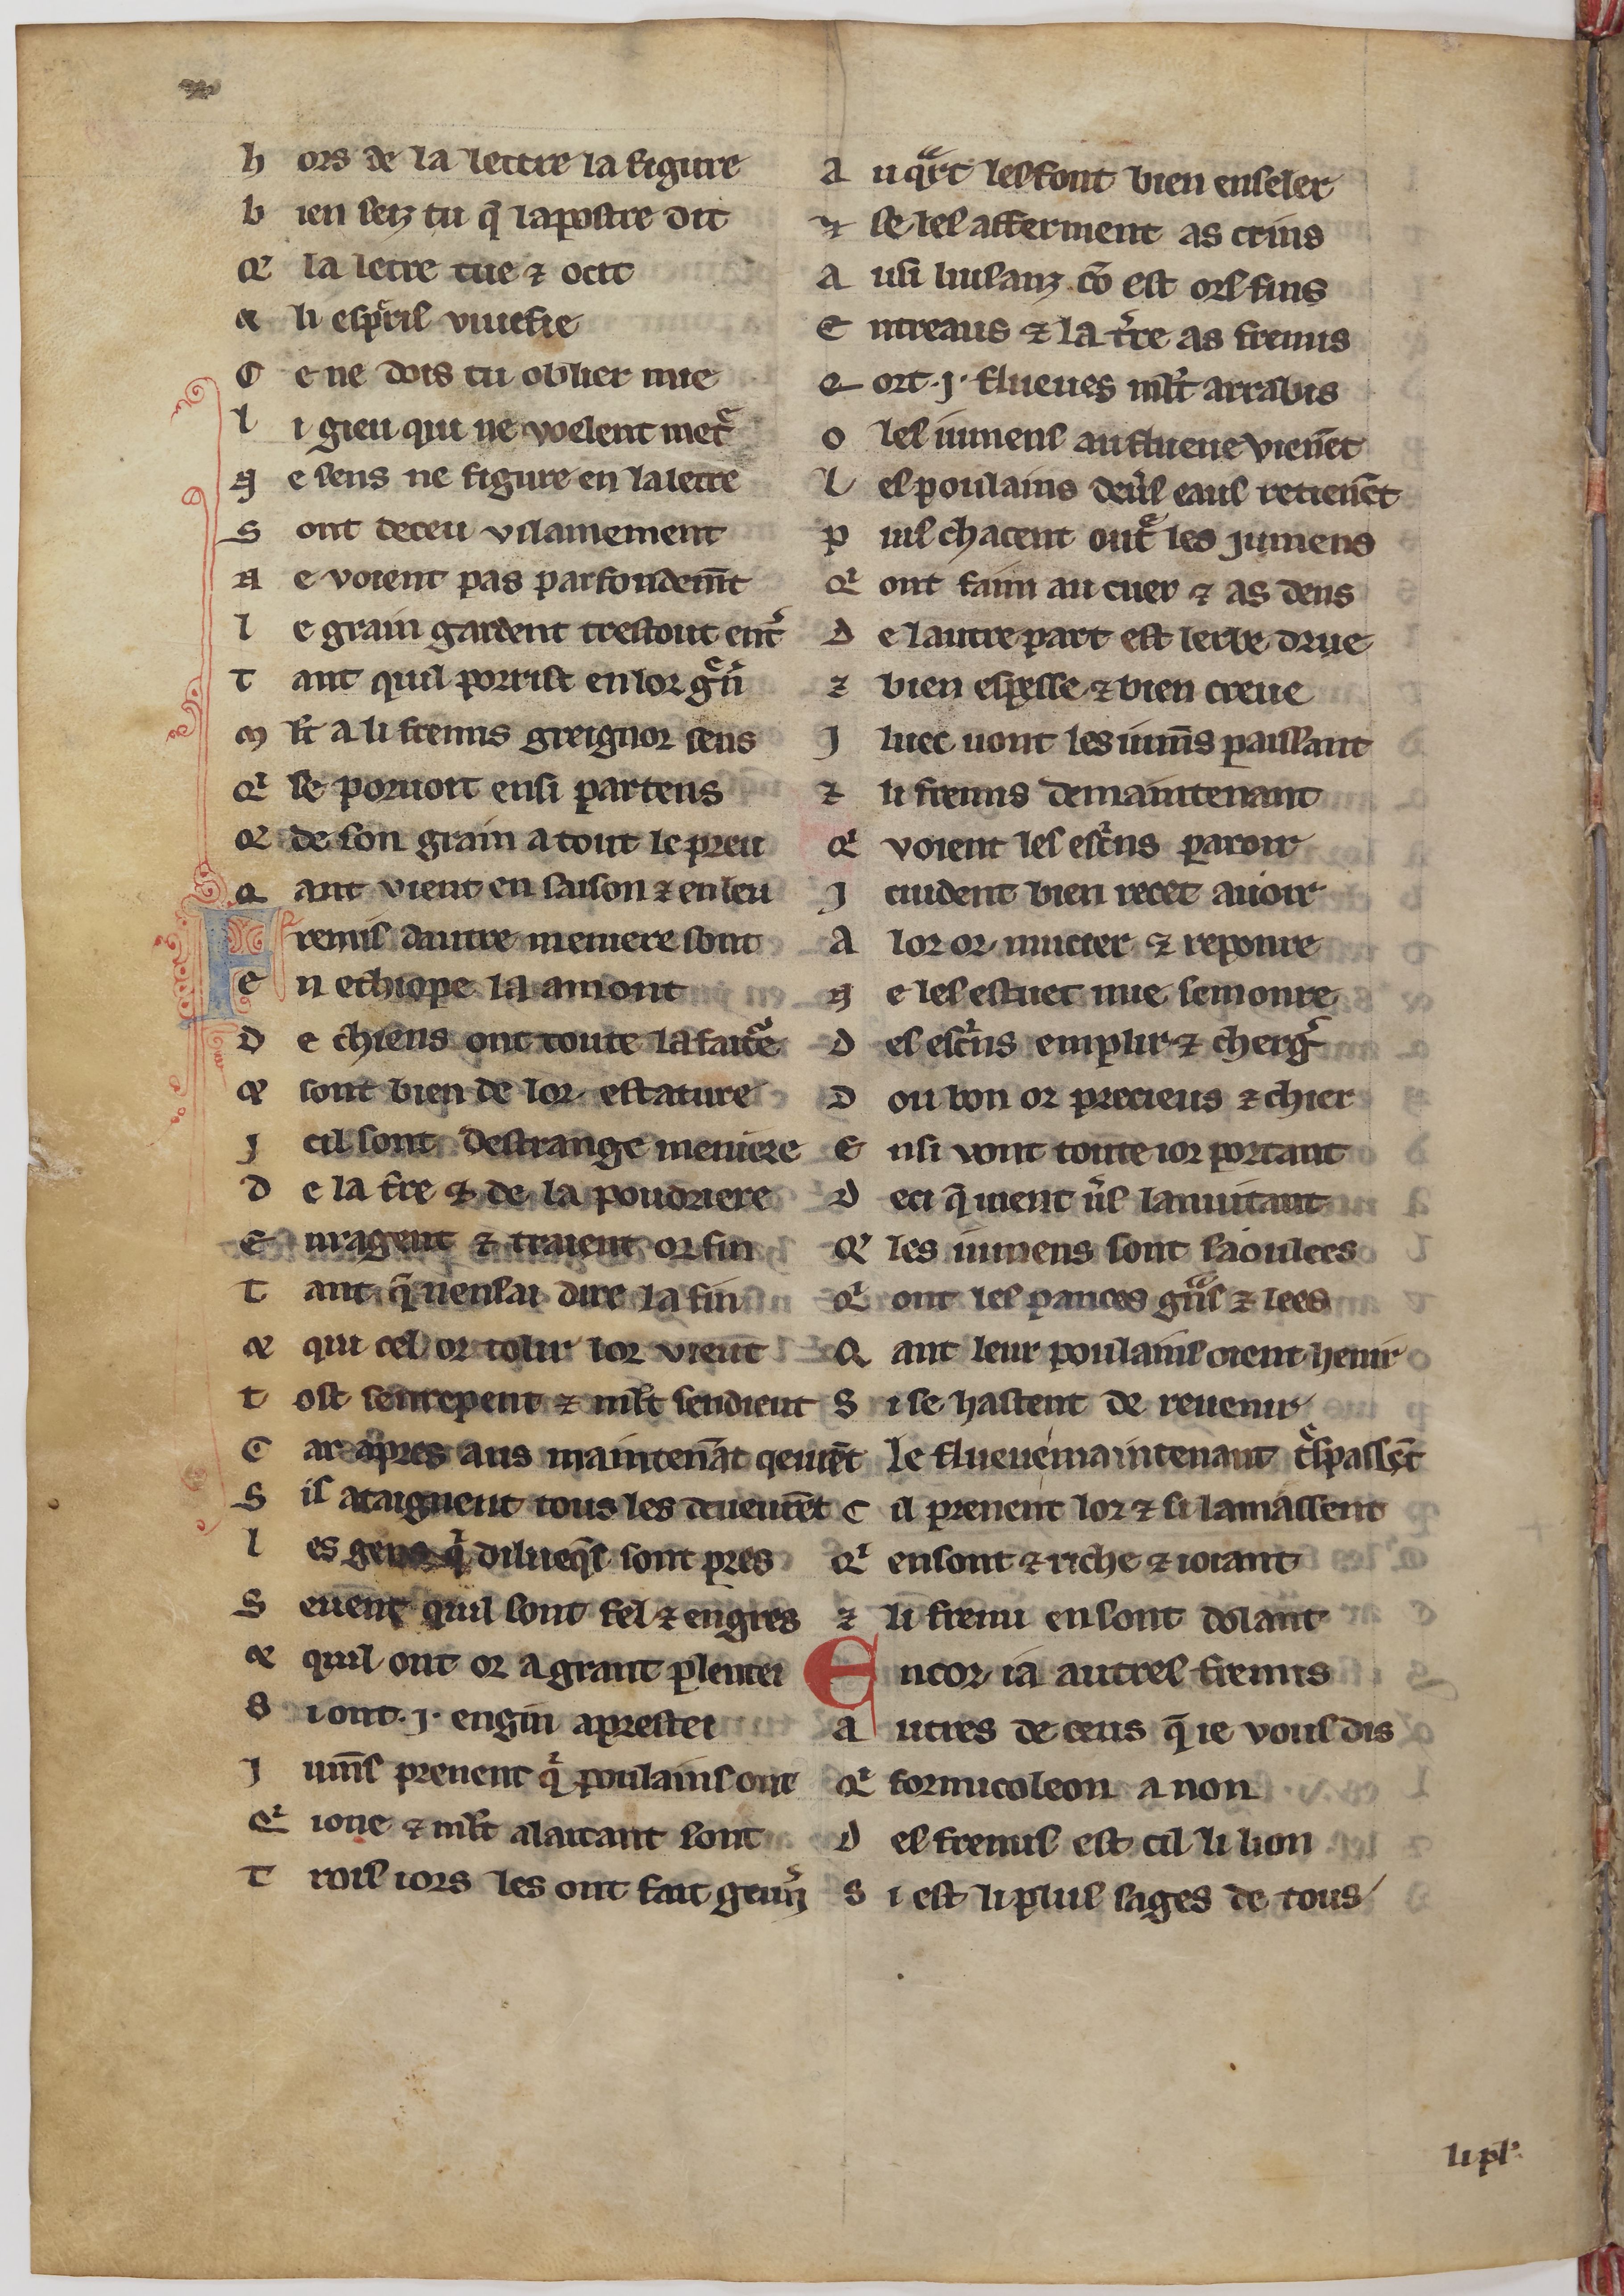 hors de la lettre la figure
bien seiz tu q̄ lapostre dit
Qe la letre tue ⁊ ocit
Et li esperis viuefie
Ce ne dois tu oblier mie
li gieu qui ne voelent metͬ
Ne sens ne figure en la letre
Sont deceu vilainement
Ne voient pas parfondem̄t
le grain gardent trestout entͥ
Tant quil porrist en lor gͤn̄
Ml̄t a li fremis greignor sens
Qͥ se poruoit ensi par tens
Qͥ de son grain a tout le preu
Qant vient en saison ⁊ en leu
Fremis dautre meniere sont
en ethiope la amont
De chiens ont toute la faitͬe
Et sont bien de lor estature
J cil sont destrange meniere
De la tͬre ⁊ de la poudriere
Enragent ⁊ traient or fin
Tant q̄ nen sai dire la fin
Et qui cel or tolir lor vient
tost sen repent ⁊ ml̄t sen dieut
Car apres aus maintenāt qeurēt
Sil ataignent tous les deueurēt
les gens qͥ dilueqs̄ sont pres
Seuent quil sont fel ⁊ engres
Et quil ont or a grant plentei
Si ont .j. engin aprestei
Jum̄s prenent qͥ poulains ont
Qͥ ione ⁊ ml̄t alaitant sont
Trois iors les ont fait geun̄
Au qͣrt les font bien enseler
⁊ se les afferment as crins
Ausi luisanz cō est ors fins
Entreaus ⁊ la tͬre as fremis
Cort .j. flueues ml̄t arrabis
O les iumens au flueue vienēt
Les poulains deuͬs eaus retienēt
puis chacent outͬ les jumens
Qͥ ont faim au cuer ⁊ as dens
De lautre part est lerbe drue
⁊ bien espesse ⁊ bien creue
Jluec uont les ium̄s paissant
⁊ li fremis de maintenant
Qͥ voient les escͥns paroir
J cuident bien recet auoir
A lor or mucier ⁊ reponre
Ne les estuet mie semonre
Des escͥns emplir ⁊ chergͬ
Dou bon or precieus ⁊ chier
Ensi vont toute ior portant
Deci q̄ uient uͬs lanuitant
Qͥ les iumens sont saoulees
Qͥ ont les pances gͣns ⁊ lees
Qant leur poulains oient henir
Si se hastent de reuenir
le flueue maintenant tͬspassēt
Cil prenent lor ⁊ si lamassent
Qͥ en sont ⁊ riche ⁊ ioiant
⁊ li fremi en sont dolant
Encor ia autres fremis
Autres de ceus q̄ ie vous dis
Qͥ formicoleon a non
Des fremis est cil li lion
Si est li plus sages de tous
li pl'